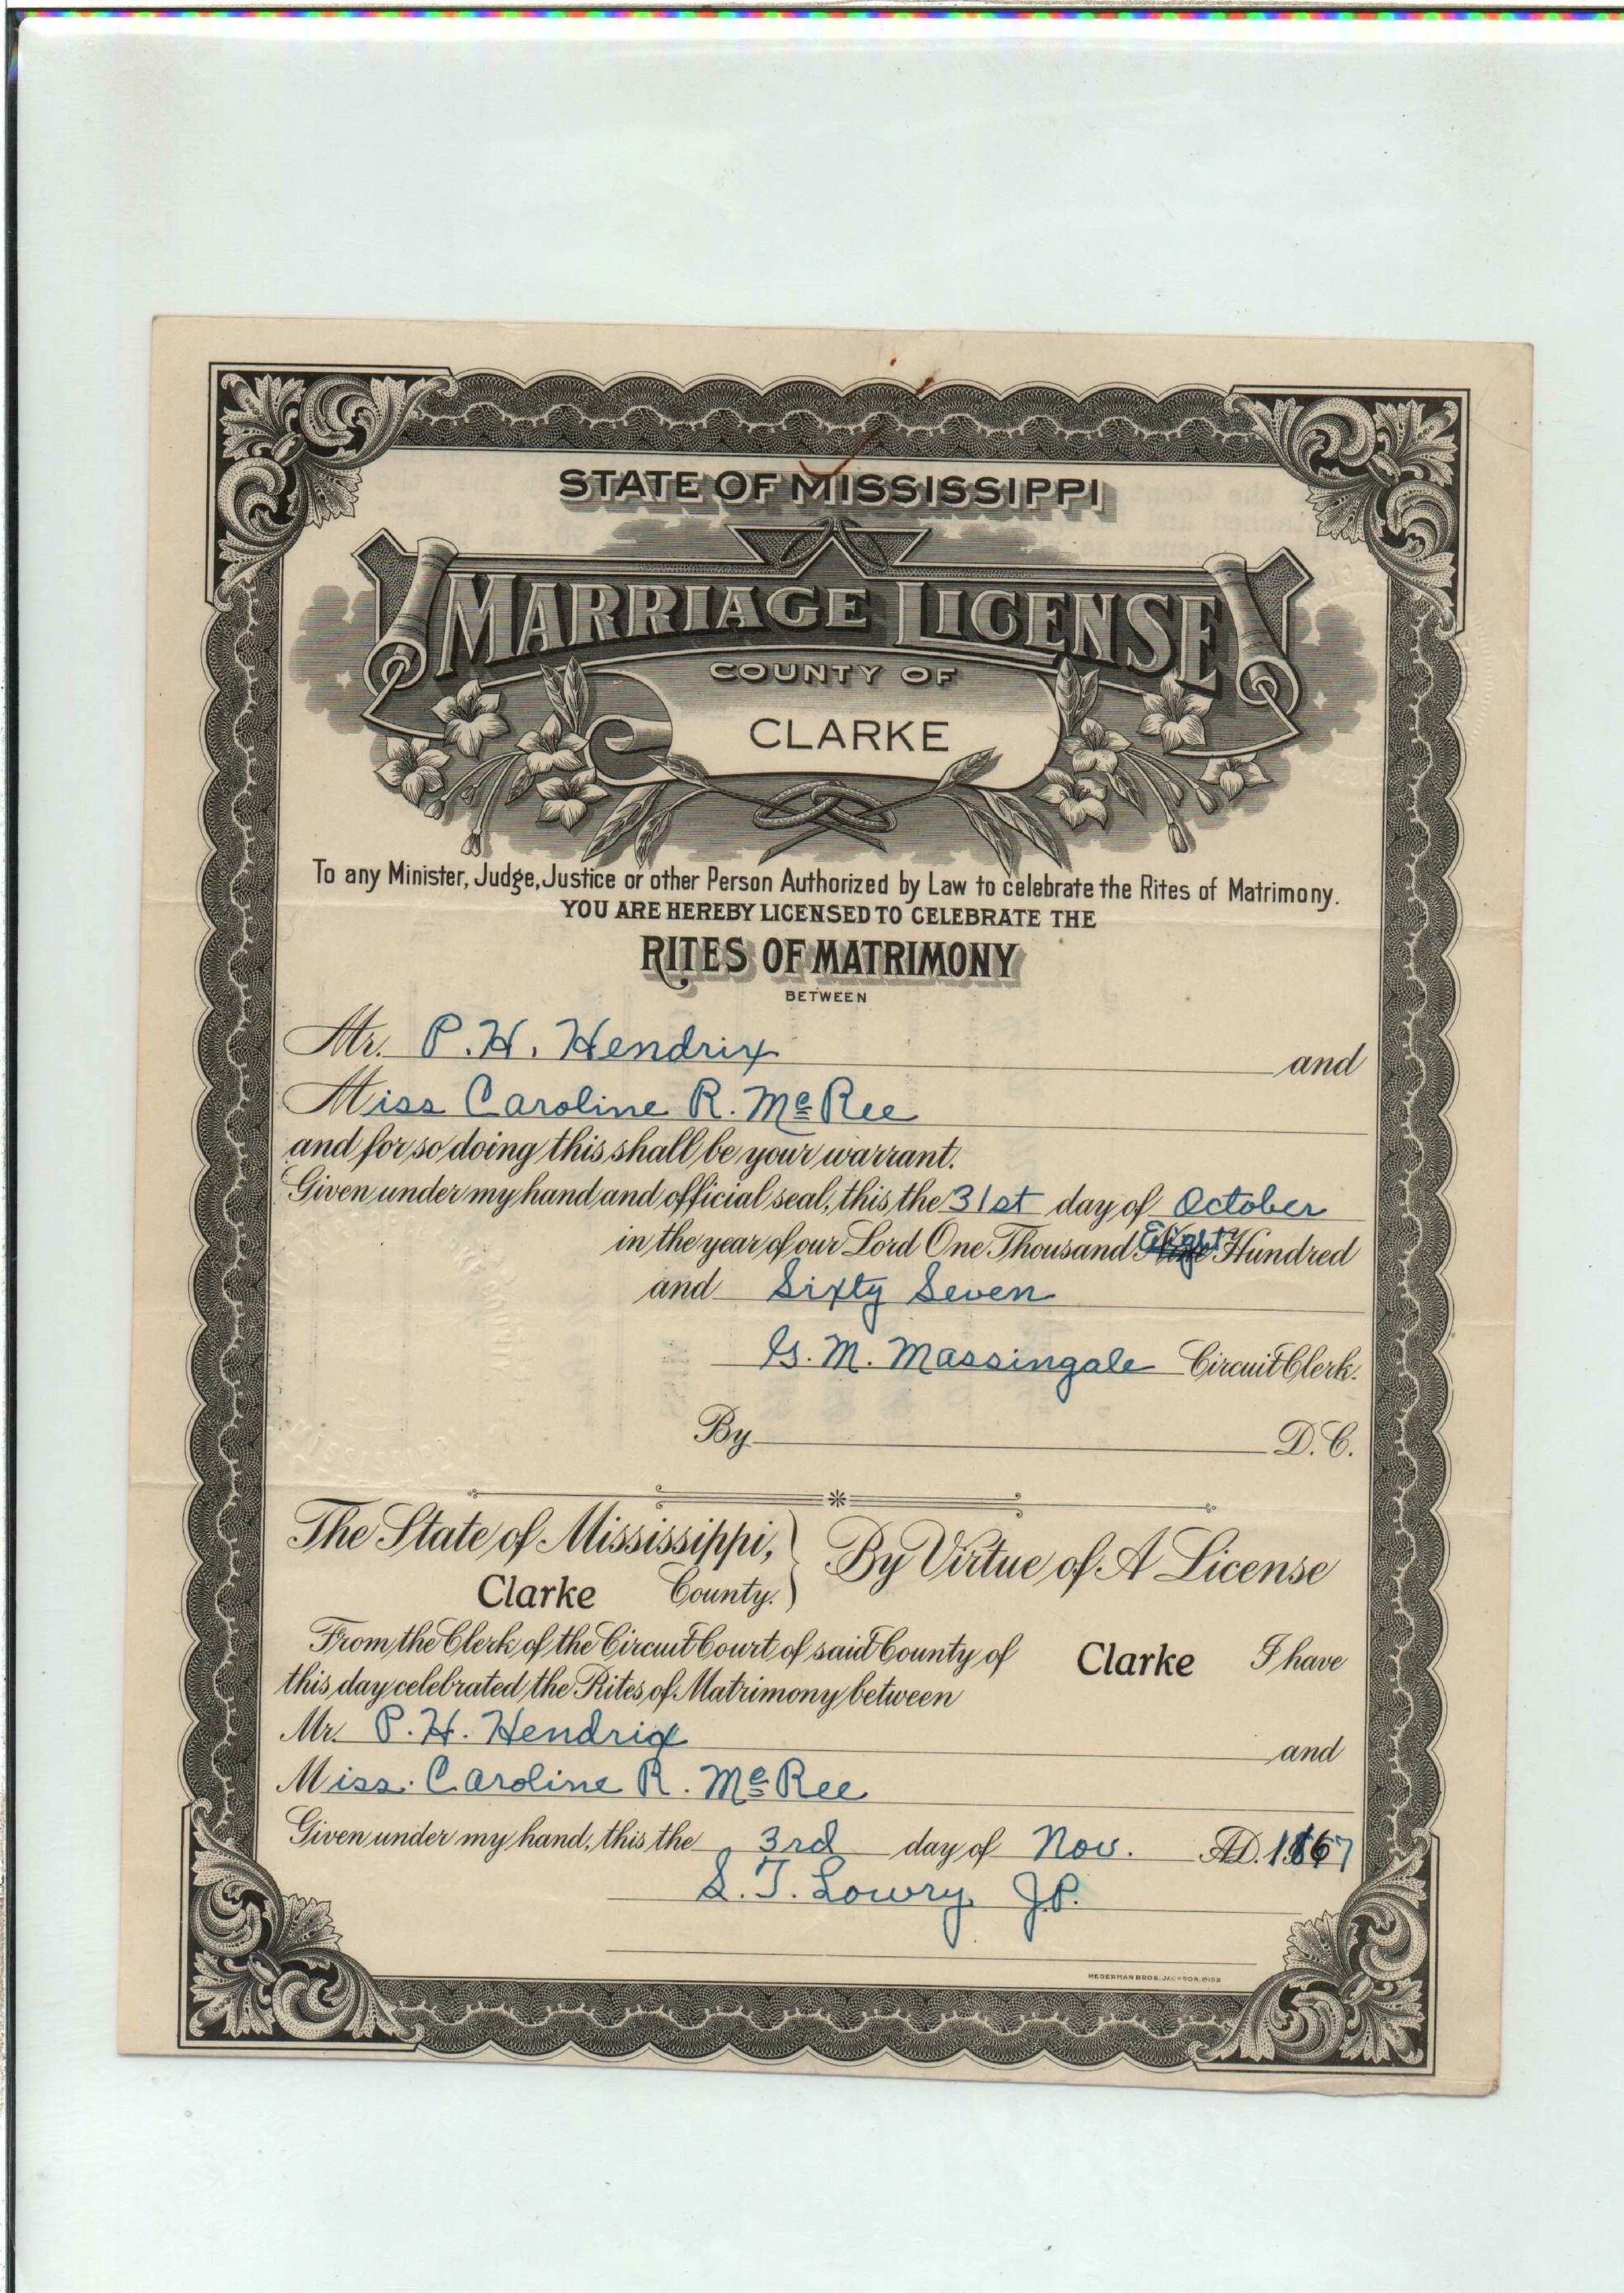 STATE OF MISSISSIPPI
MARRIAGE LICENSE
COUNTY OF
CLARKE
To any Minister, Judge, Justice or other Person Authorized by Law to celebrate the Rites of Matrimony.
YOU ARE HEREBY LICENSED TO CELEBRATE THE
RITES OF MATRIMONY
BETWEEN
Mr. P. H. Hendrix and
Miss Caroline R. McRee
and for so doing this shall be your warrant.
Given under my hand and official seal, this the 31st day of October
in the year of our Lord One Thousand Eight Hundred
and Sixty Seven
G. M. Massingale Circuit Clerk.
By D. C.
The State of Mississippi, By Virtue of A License
Clarke County.
From the Clerk of the Circuit Court of said County of Clarke I have
this day celebrated the Rites of Matrimony between
Mr. P. H. Hendrix and
Miss. Caroline R. McRee
Given under my hand, this the 3rd day of Nov. A.D. 1867
S. T. Lowry J.P.
HEDERMAN BROS. JACKSON, MISS